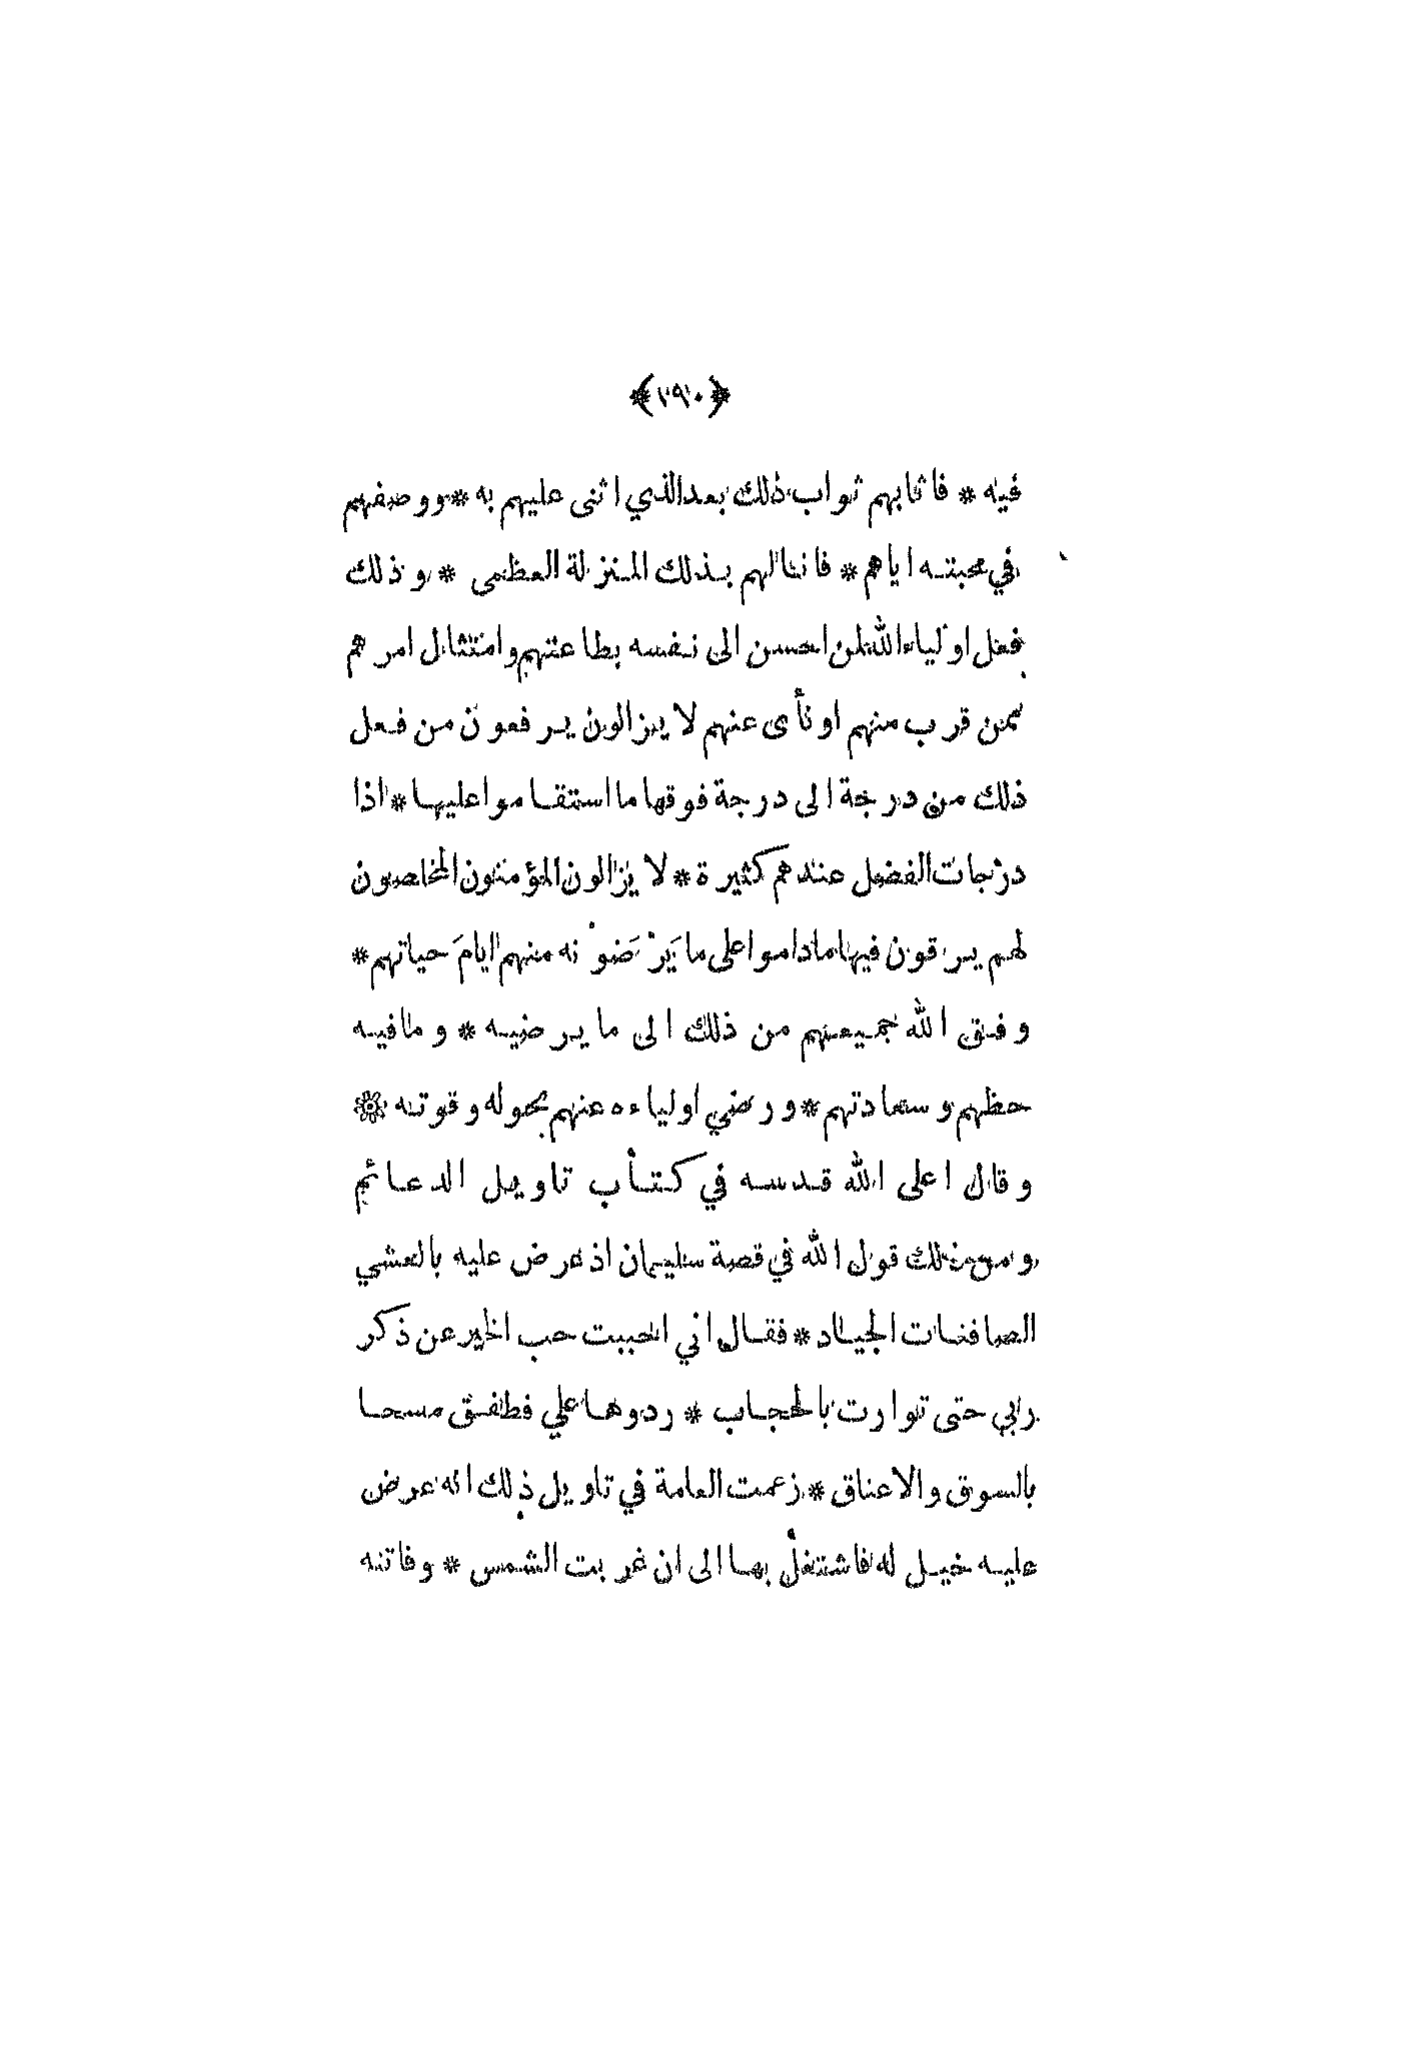 ﴿٢٩٠﴾
فيه * فاثابهم ثواب ذلك بعد الذي اثنى عليهم به * ووصفهم
في محبته اياهم * فانالهم بذلك المنزلة العظمى * وذلك
فعل اولياء الله لمن احسن الى نفسه بطاعتهم وامتثال امرهم
ممن قرب منهم او نأى عنهم لا يزالون يرفعون من فعل
ذلك من درجة الى درجة فوقها ما استقاموا عليها * اذا
درجات الفضل عندهم كثيرة * لا يزالون المؤمنون المخلصون
لهم يرقون فيها ما داموا على ما يَرْضَوْنه منهم ايامَ حياتهم *
وفق الله جميعهم من ذلك الى ما يرضيه * وما فيه
حظهم وسعادتهم * ورضي اولياءه عنهم بحوله وقوته ۞
وقال اعلى الله قدسه في كتاب تاويل الدعائم
ومن ذلك قول الله في قصة سليمان اذ عرض عليه بالعشي
الصافنات الجياد * فقال اني احببت حب الخير عن ذكر
ربي حتى توارت بالحجاب * ردوها علي فطفق مسحا
بالسوق والاعناق * زعمت العامة في تاويل ذلك انه عرض
عليه خيل له فاشتغل بها الى ان غربت الشمس * وفاتته